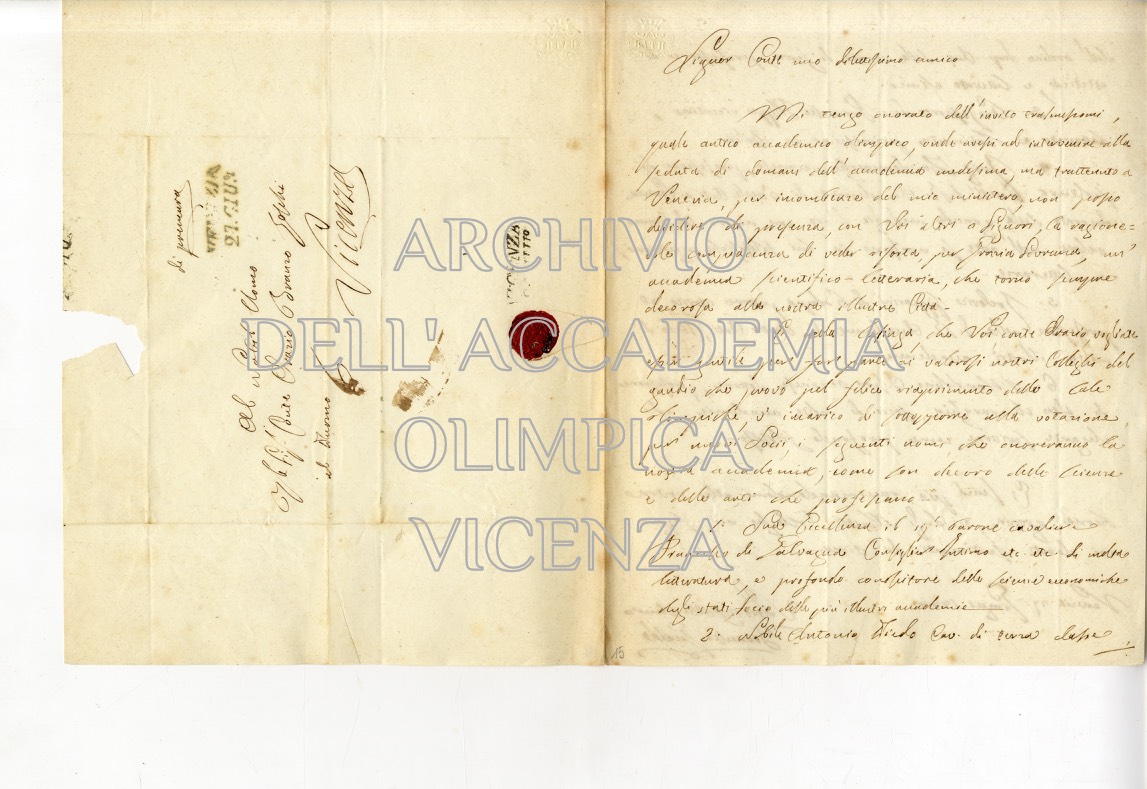 di premura
VENEZIA
27. GIU.
Al Nobil Uomo
Conte Orazio
al Duomo
Vicenza
VICENZA
Signor Conte mio dilettissimo amico
Mi tengo onorato dell'invito trasmessomi,
quale antico accademico olimpico, onde avessi ad intervenire alla
seduta di domani dell'accademia medesima, ma trattenuto a
Venezia, per incombenze del mio ministero, non posso
dividere di presenza, con Voi altri o Signori, la ragione=
vole compiacenza di veder risorta, per Grazia Sovrana, un'
accademia scientifico-letteraria, che torno sempre
decorosa alla nostra illustre Città.
che Voi conte Orazio, vogliate
esser per far parte ai valorosi nostri Colleghi del
gaudio che provo pel felice riaprimento delle Sale
olimpiche, v'incarico di alla votazione,
per nuovi Socii, i seguenti nomi, che onoreranno la
nostra accademia, come son decoro delle scienze
e delle arti che professano
1. Sua Eccellenza il sig.r Barone cavaliere
de Consigliere Intimo etc. etc. di molta
letteratura, e profondo conoscitore delle scienze economiche
degli stati socio delle più illustri accademie
2. Nobile Antonio Diedo Cav. di terza classe
15
ARCHIVIO
DELL'ACCADEMIA
OLIMPICA
VICENZA